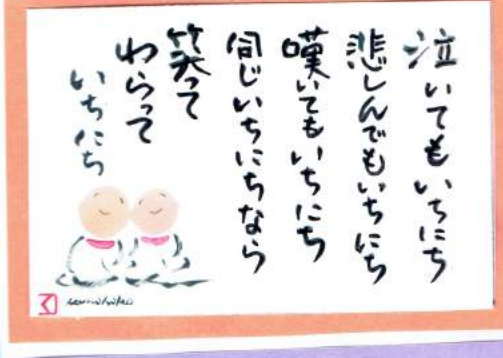 泣いてもいちにち
悲しんでもいちにち
嘆いてもいちにち
同じいちにちなら
笑って
わらって
いちにち